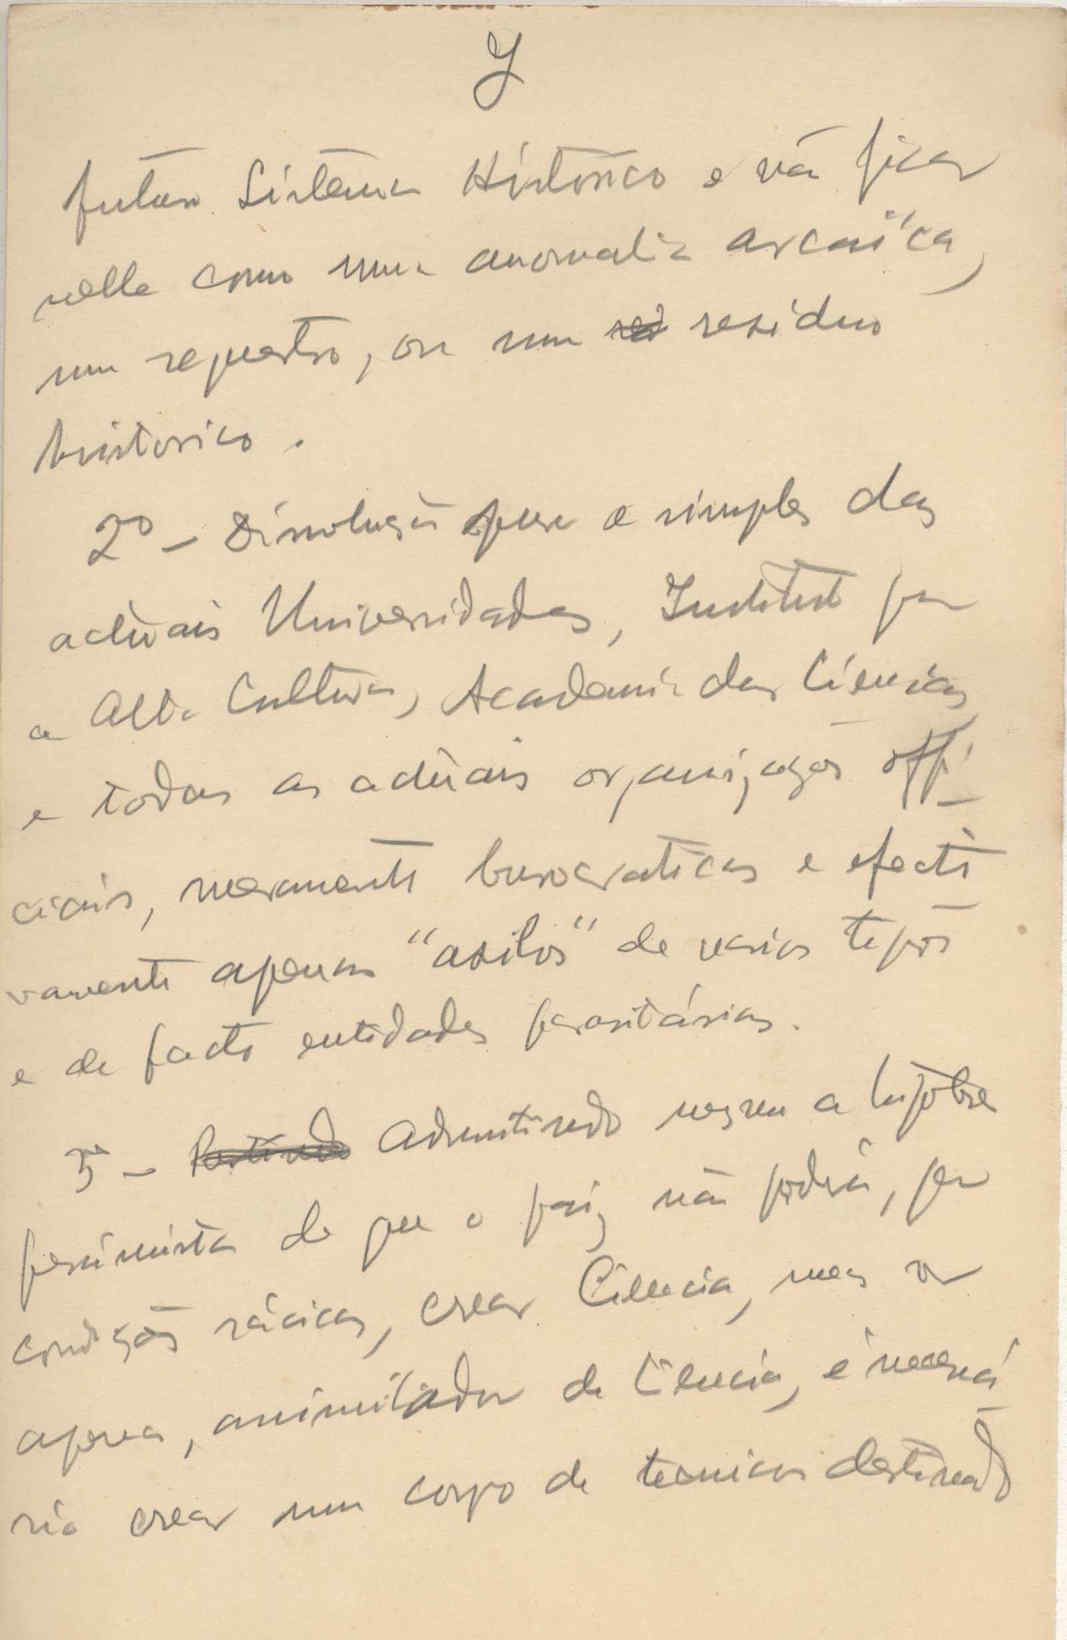 Y
futuro Sistema Histórico e vá ficar
nelle como uma anomalia arcaïca,
um sequestro, ou um resíduo
historico.
2º — Dissolução pura e simples das
actuais Universidades, Instituto para
a Alta Cultura, Academia das Ciências
e todas as actuais organizações offi-
ciais, meramente burocraticas e efecti
vamente apenas "asilos" de varios tipos
e de facto entidades parasitárias.
3 — Admitindo mesmo a hipótese
pessimista de que o paiz não poderá, por
condições rácicas, crear Ciencia, mas ser
apenas, assimilador de Ciencia, é necessá-
rio crear um corpo de tecnicos destinado